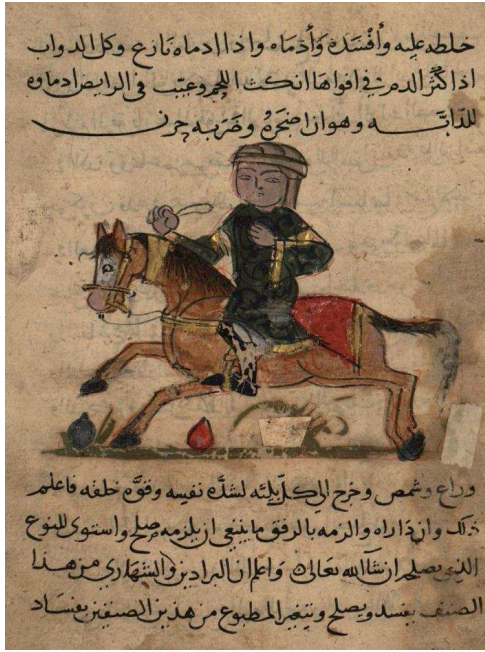 خلطه عليه وأفسده وأدماه واذا ادماه نازع وكل الدواب
اذا كثر الدم في افواهها انكت اللجم وعيب في الرايض ادماوه
للدابه وهو ان اضجره وضربه حرن
وراغ وشمص وخرج الى كل بليه لشدة نفسه وقوة خلقه فاعلم
ذلك وان داراه والزمه بالرفق ما ينبغي ان يلزمه صلح واستوى للنوع
الذي يصلح ان شاالله تعالى واعلم ان البرادين والشهاري من هذا
الصنف يفسد ويصلح ويتغير المطبوع من هذين الصنفين بفساد